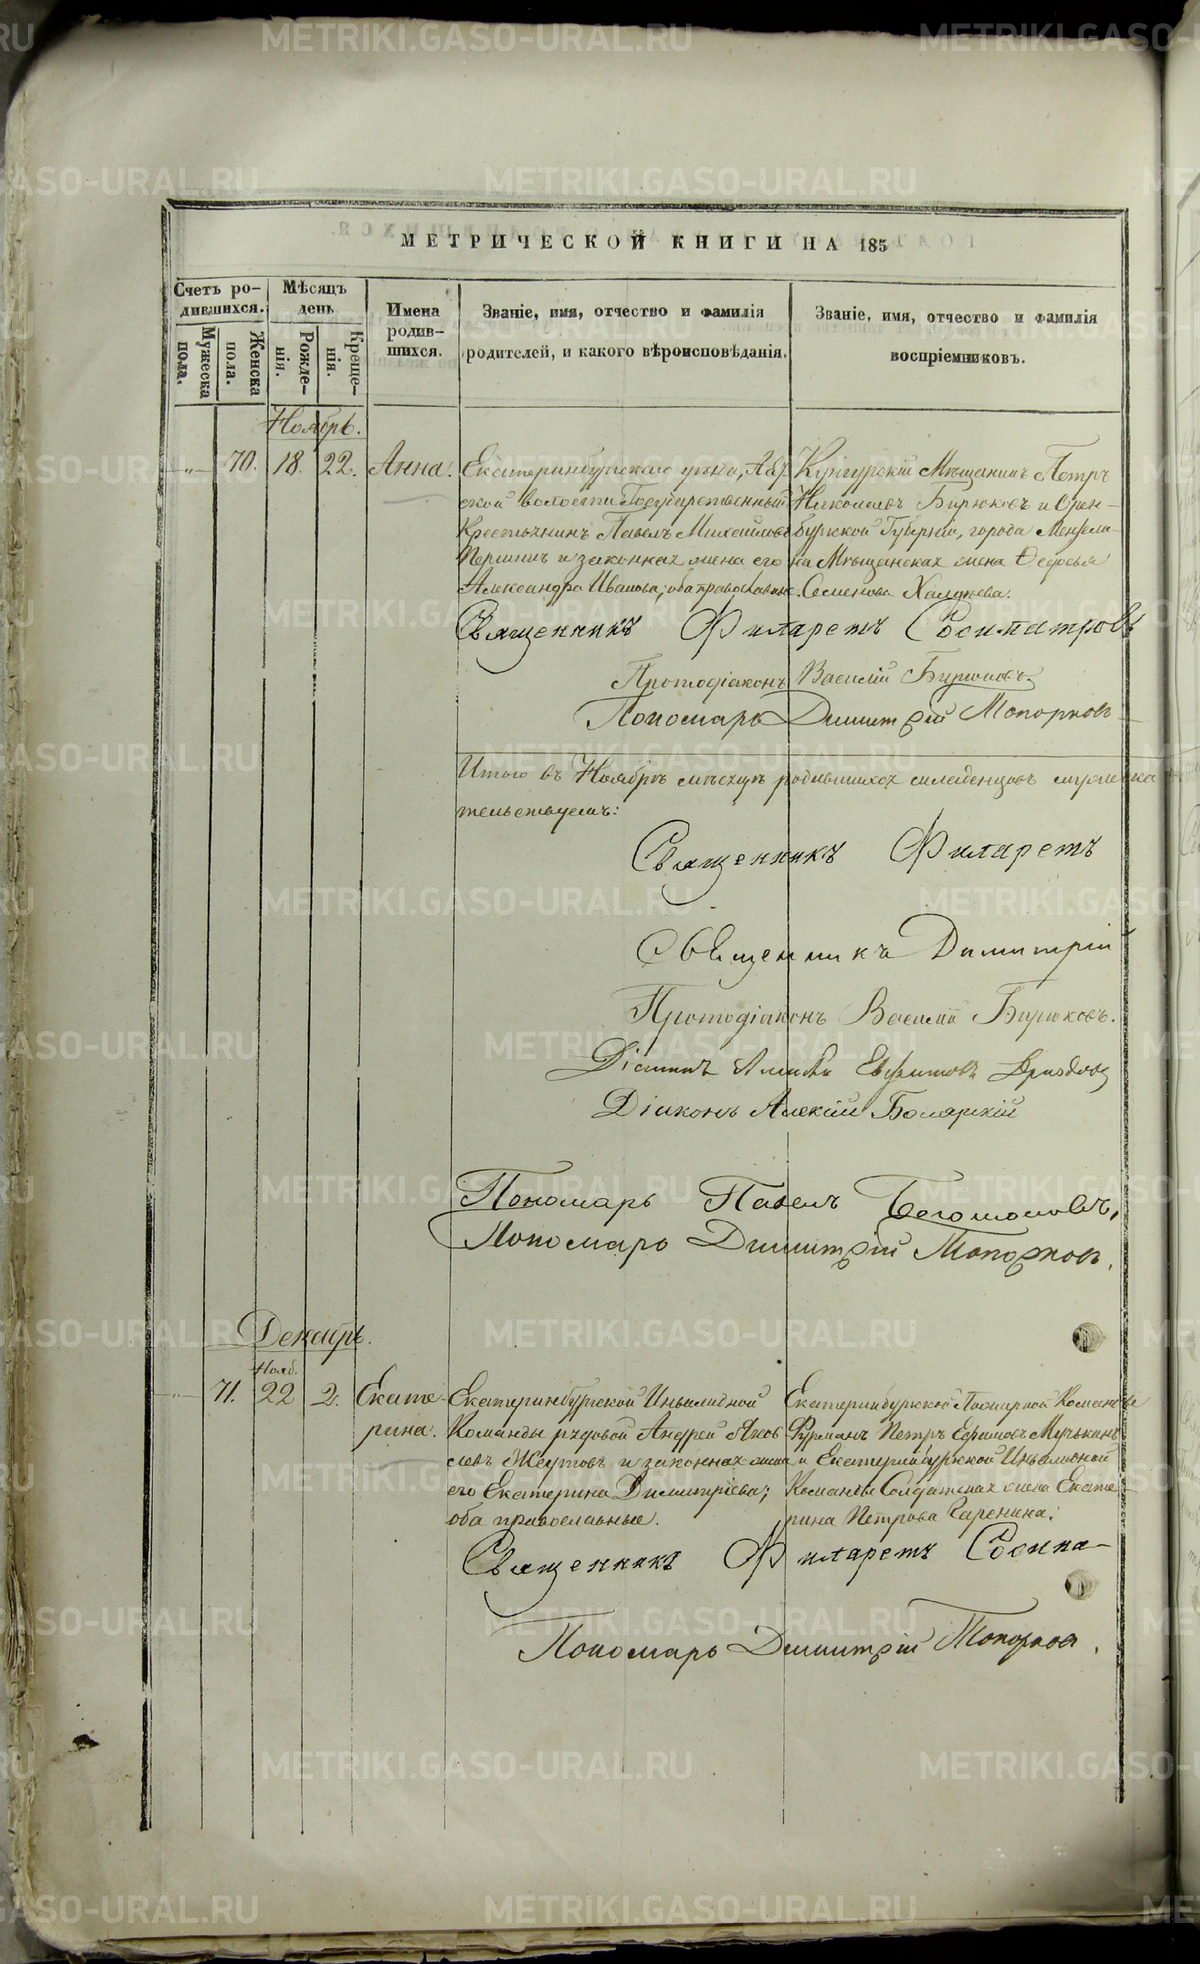 МЕТРИЧЕСКОЙ КНИГИ НА 185
Счетъ ро-
дившихся.
Мѣсяцъ
день
Имена
родив-
шихся.
Званіе, имя, отчество и фамилія
родителей, и какого вѣроисповѣданія.
Званіе, имя, отчество и фамилія
воспріемниковъ.
Мужеска
пола.
Женска
пола.
Рожде-
нія.
Креще-
нія.
Ноябрь.
70. 18. 22. Анна.
Екатеринбургскаго уѣзда,
ской волости Государственный
Крестьянинъ Павелъ Михайловъ
Першинъ и законная жена его
Александра Иванова; оба православные.
Кунгурскій Мѣщанинъ Петръ
Николаевъ Бирюковъ и Орен-
бургской Губерніи, города Мензелин-
ска Мѣщанская жена Ѳедосья
Семенова
Священникъ Филаретъ Сосипатровъ
Протодіаконъ Василій Бирюковъ.
Пономарь Димитрій Топорковъ
Итого въ Ноябрѣ мѣсяцѣ родившихся младенцовъ мужеска
тельствуемъ:
Священникъ Филаретъ
Священникъ Димитрій
Протодіаконъ Василій Бирюковъ.
Діаконъ
Діаконъ Алексій Болярскій
Пономарь Павелъ Богомоловъ,
Пономарь Димитрій Топорковъ.
Декабрь.
Нояб.
71. 22 2. Екате-
рина.
Екатеринбургской Инвалидной
Команды рядовой Андрей Яков-
левъ и законная жена
его Екатерина Димитріева;
оба православные.
Екатеринбургской Пожарной Команды
Фурманъ Петръ Ефимовъ
и Екатеринбургской Инвалидной
Команды Солдатская жена Екате-
рина Петрова Гаренина.
Священникъ Филаретъ Сосипа-
Пономарь Димитрій Топорковъ.
METRIKI.GASO-URAL.RU